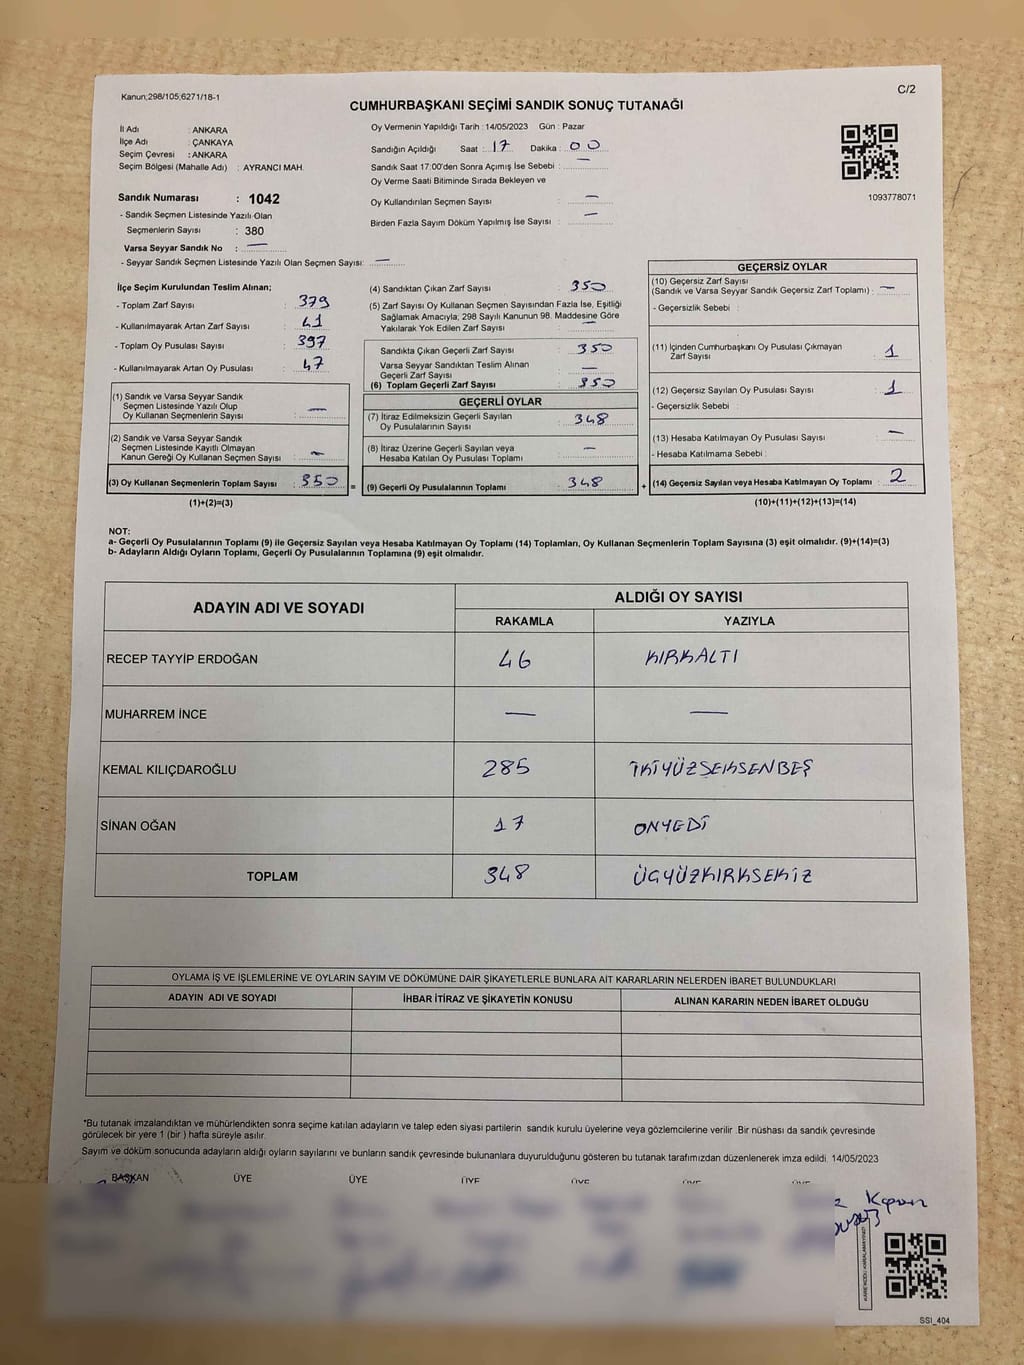 Kanun;298/105;6271/18-1
C/2
CUMHURBAŞKANI SEÇİMİ SANDIK SONUÇ TUTANAĞI
İl Adı : ANKARA
İlçe Adı : ÇANKAYA
Seçim Çevresi : ANKARA
Seçim Bölgesi (Mahalle Adı) : AYRANCI MAH.
Sandık Numarası : 1042
- Sandık Seçmen Listesinde Yazılı Olan
Seçmenlerin Sayısı : 380
Varsa Seyyar Sandık No : —
- Seyyar Sandık Seçmen Listesinde Yazılı Olan Seçmen Sayısı: —
Oy Vermenin Yapıldığı Tarih : 14/05/2023 Gün : Pazar
Sandığın Açıldığı Saat : 17 Dakika : 00
Sandık Saat 17:00'den Sonra Açımış İse Sebebi : —
Oy Verme Saati Bitiminde Sırada Bekleyen ve
Oy Kullandırılan Seçmen Sayısı : —
Birden Fazla Sayım Döküm Yapılmış İse Sayısı : —
1093778071
İlçe Seçim Kurulundan Teslim Alınan;
- Toplam Zarf Sayısı : 379
- Kullanılmayarak Artan Zarf Sayısı : 41
- Toplam Oy Pusulası Sayısı : 397
- Kullanılmayarak Artan Oy Pusulası : 47
(1) Sandık ve Varsa Seyyar Sandık
Seçmen Listesinde Yazılı Olup
Oy Kullanan Seçmenlerin Sayısı : —
(2) Sandık ve Varsa Seyyar Sandık
Seçmen Listesinde Kayıtlı Olmayan
Kanun Gereği Oy Kullanan Seçmen Sayısı : —
(3) Oy Kullanan Seçmenlerin Toplam Sayısı : 350
(1)+(2)=(3)
(4) Sandıktan Çıkan Zarf Sayısı : 350
(5) Zarf Sayısı Oy Kullanan Seçmen Sayısından Fazla İse, Eşitliği
Sağlamak Amacıyla; 298 Sayılı Kanunun 98. Maddesine Göre
Yakılarak Yok Edilen Zarf Sayısı : —
Sandıkta Çıkan Geçerli Zarf Sayısı : 350
Varsa Seyyar Sandıktan Teslim Alınan
Geçerli Zarf Sayısı : —
(6) Toplam Geçerli Zarf Sayısı : 350
GEÇERLİ OYLAR
(7) İtiraz Edilmeksizin Geçerli Sayılan
Oy Pusulalarının Sayısı : 348
(8) İtiraz Üzerine Geçerli Sayılan veya
Hesaba Katılan Oy Pusulası Toplamı : —
= (9) Geçerli Oy Pusulalarının Toplamı : 348 +
GEÇERSİZ OYLAR
(10) Geçersiz Zarf Sayısı
(Sandık ve Varsa Seyyar Sandık Geçersiz Zarf Toplamı) : —
- Geçersizlik Sebebi :
(11) İçinden Cumhurbaşkanı Oy Pusulası Çıkmayan
Zarf Sayısı : 1
(12) Geçersiz Sayılan Oy Pusulası Sayısı : 1
- Geçersizlik Sebebi :
(13) Hesaba Katılmayan Oy Pusulası Sayısı : —
- Hesaba Katılmama Sebebi :
(14) Geçersiz Sayılan veya Hesaba Katılmayan Oy Toplamı : 2
(10)+(11)+(12)+(13)=(14)
NOT:
a- Geçerli Oy Pusulalarının Toplamı (9) ile Geçersiz Sayılan veya Hesaba Katılmayan Oy Toplamı (14) Toplamları, Oy Kullanan Seçmenlerin Toplam Sayısına (3) eşit olmalıdır. (9)+(14)=(3)
b- Adayların Aldığı Oyların Toplamı, Geçerli Oy Pusulalarının Toplamına (9) eşit olmalıdır.
ADAYIN ADI VE SOYADI
ALDIĞI OY SAYISI
RAKAMLA YAZIYLA
RECEP TAYYİP ERDOĞAN 46 KIRKALTI
MUHARREM İNCE — —
KEMAL KILIÇDAROĞLU 285 İKİYÜZSEKSENBEŞ
SİNAN OĞAN 17 ONYEDİ
TOPLAM 348 ÜÇYÜZKIRKSEKİZ
OYLAMA İŞ VE İŞLEMLERİNE VE OYLARIN SAYIM VE DÖKÜMÜNE DAİR ŞİKAYETLERLE BUNLARA AİT KARARLARIN NELERDEN İBARET BULUNDUKLARI
ADAYIN ADI VE SOYADI İHBAR İTİRAZ VE ŞİKAYETİN KONUSU ALINAN KARARIN NEDEN İBARET OLDUĞU
*Bu tutanak imzalandıktan ve mühürlendikten sonra seçime katılan adayların ve talep eden siyasi partilerin sandık kurulu üyelerine veya gözlemcilerine verilir .Bir nüshası da sandık çevresinde
görülecek bir yere 1 (bir ) hafta süreyle asılır.
Sayım ve döküm sonucunda adayların aldığı oyların sayılarını ve bunların sandık çevresinde bulunanlara duyurulduğunu gösteren bu tutanak tarafımızdan düzenlenerek imza edildi. 14/05/2023
BAŞKAN ÜYE ÜYE ÜYE ÜYE ÜYE ÜYE
SSI_404